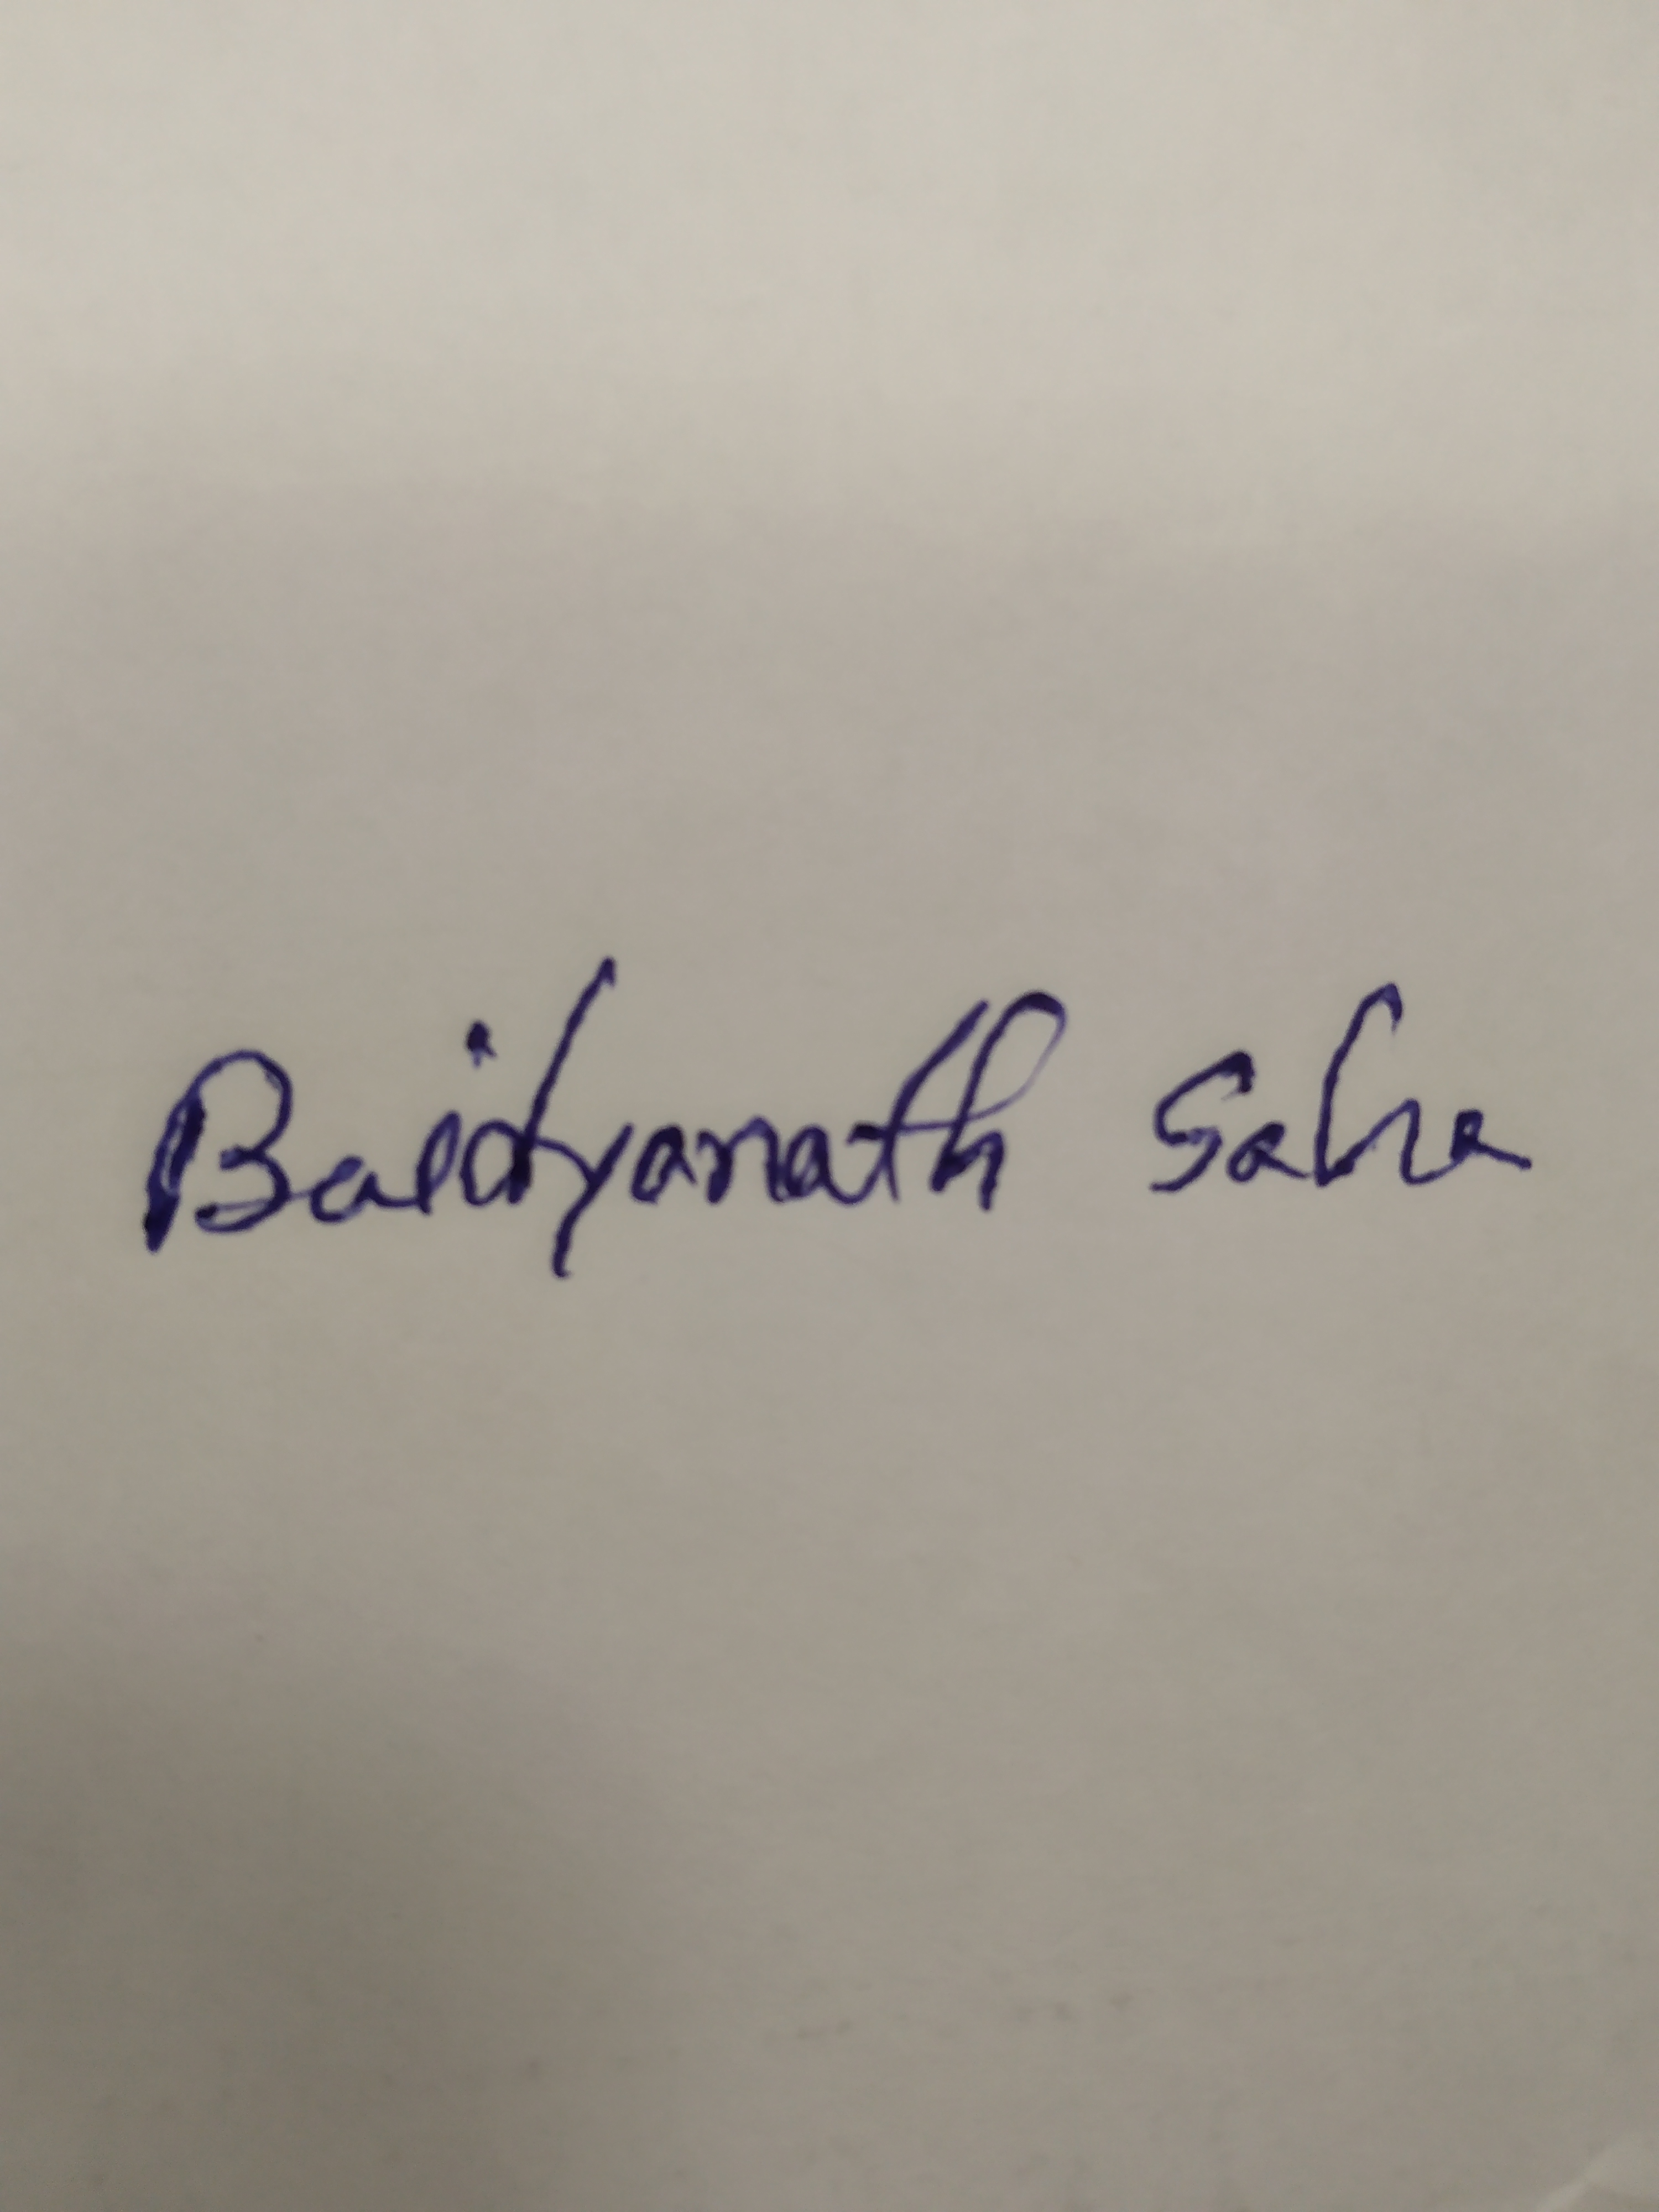 Baidyanath Saha